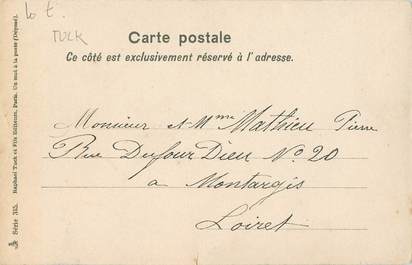 to t.
TUCK
Carte postale
Ce côté est exclusivement réservé à l'adresse.
Monsieur et Mme Mathieu Pierre
Rue Dufour Dieu No. 20
a Montargis
Loiret
Série 315. Raphael Tuck et Fils Editeurs, Paris. Un mot à la poste (Déposé).